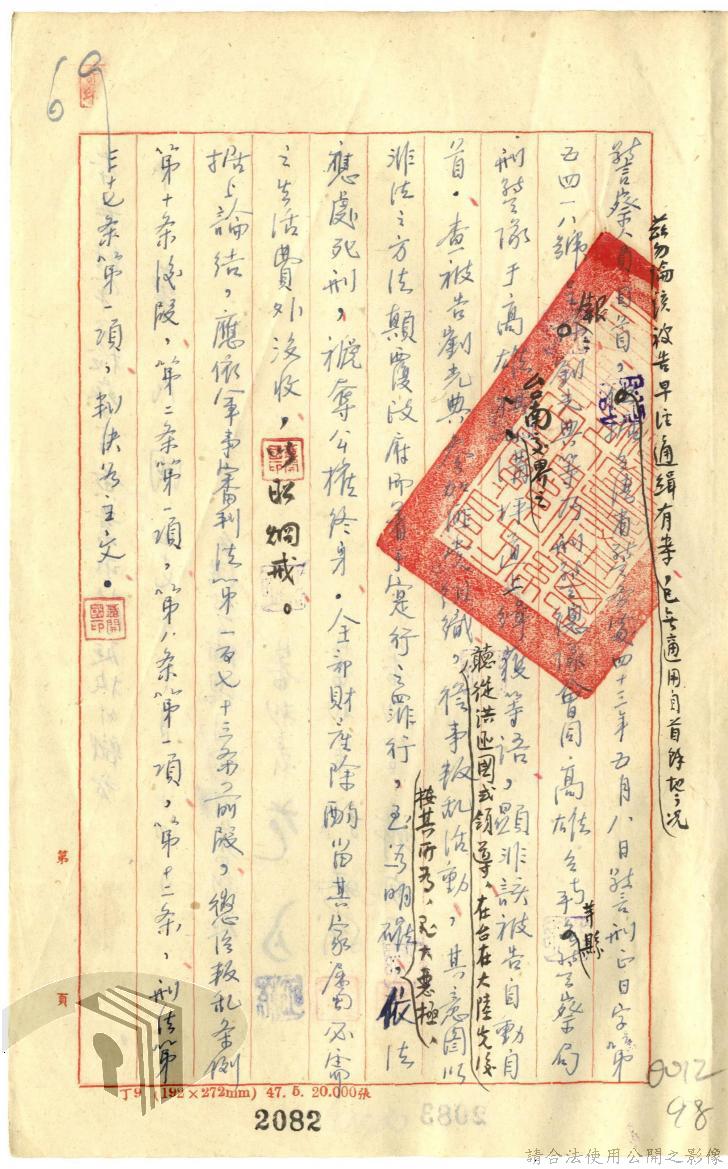 茲勿論該被告早注通緝有案，已無適用自首餘地之况
警察人員自首，
五四一八號
四十三年五月八日警刑正日字第
劉光典等乃刑警總隊會同高雄台南
等縣
警察局
刑警隊于高雄
報等語，顯非該被告自動自
台南交界之
首。查被告劉光典參加匪黨組織，
聽從洪匪國式領導，在台在大陸先後
從事叛乱活動，其意圖以
非法之方法顛覆政府而着手實行之罪行，至為明確，
按其所為，罪大惡極，
依法
應處死刑，褫奪公權終身。全部財產除酌留其家屬必需
之生活費外沒收，以昭烱戒。
據上論結，應依軍事審判法第一百七十三条前段，懲治叛乱条例
第十条後段，第二条第一項，第八条第一項，第十二条，刑法第
三十七条第一項，判決如主文。
第 頁
丁9 (192×272mm) 47. 5. 20.000張
2082
0012
98
69
請合法使用公開之影像